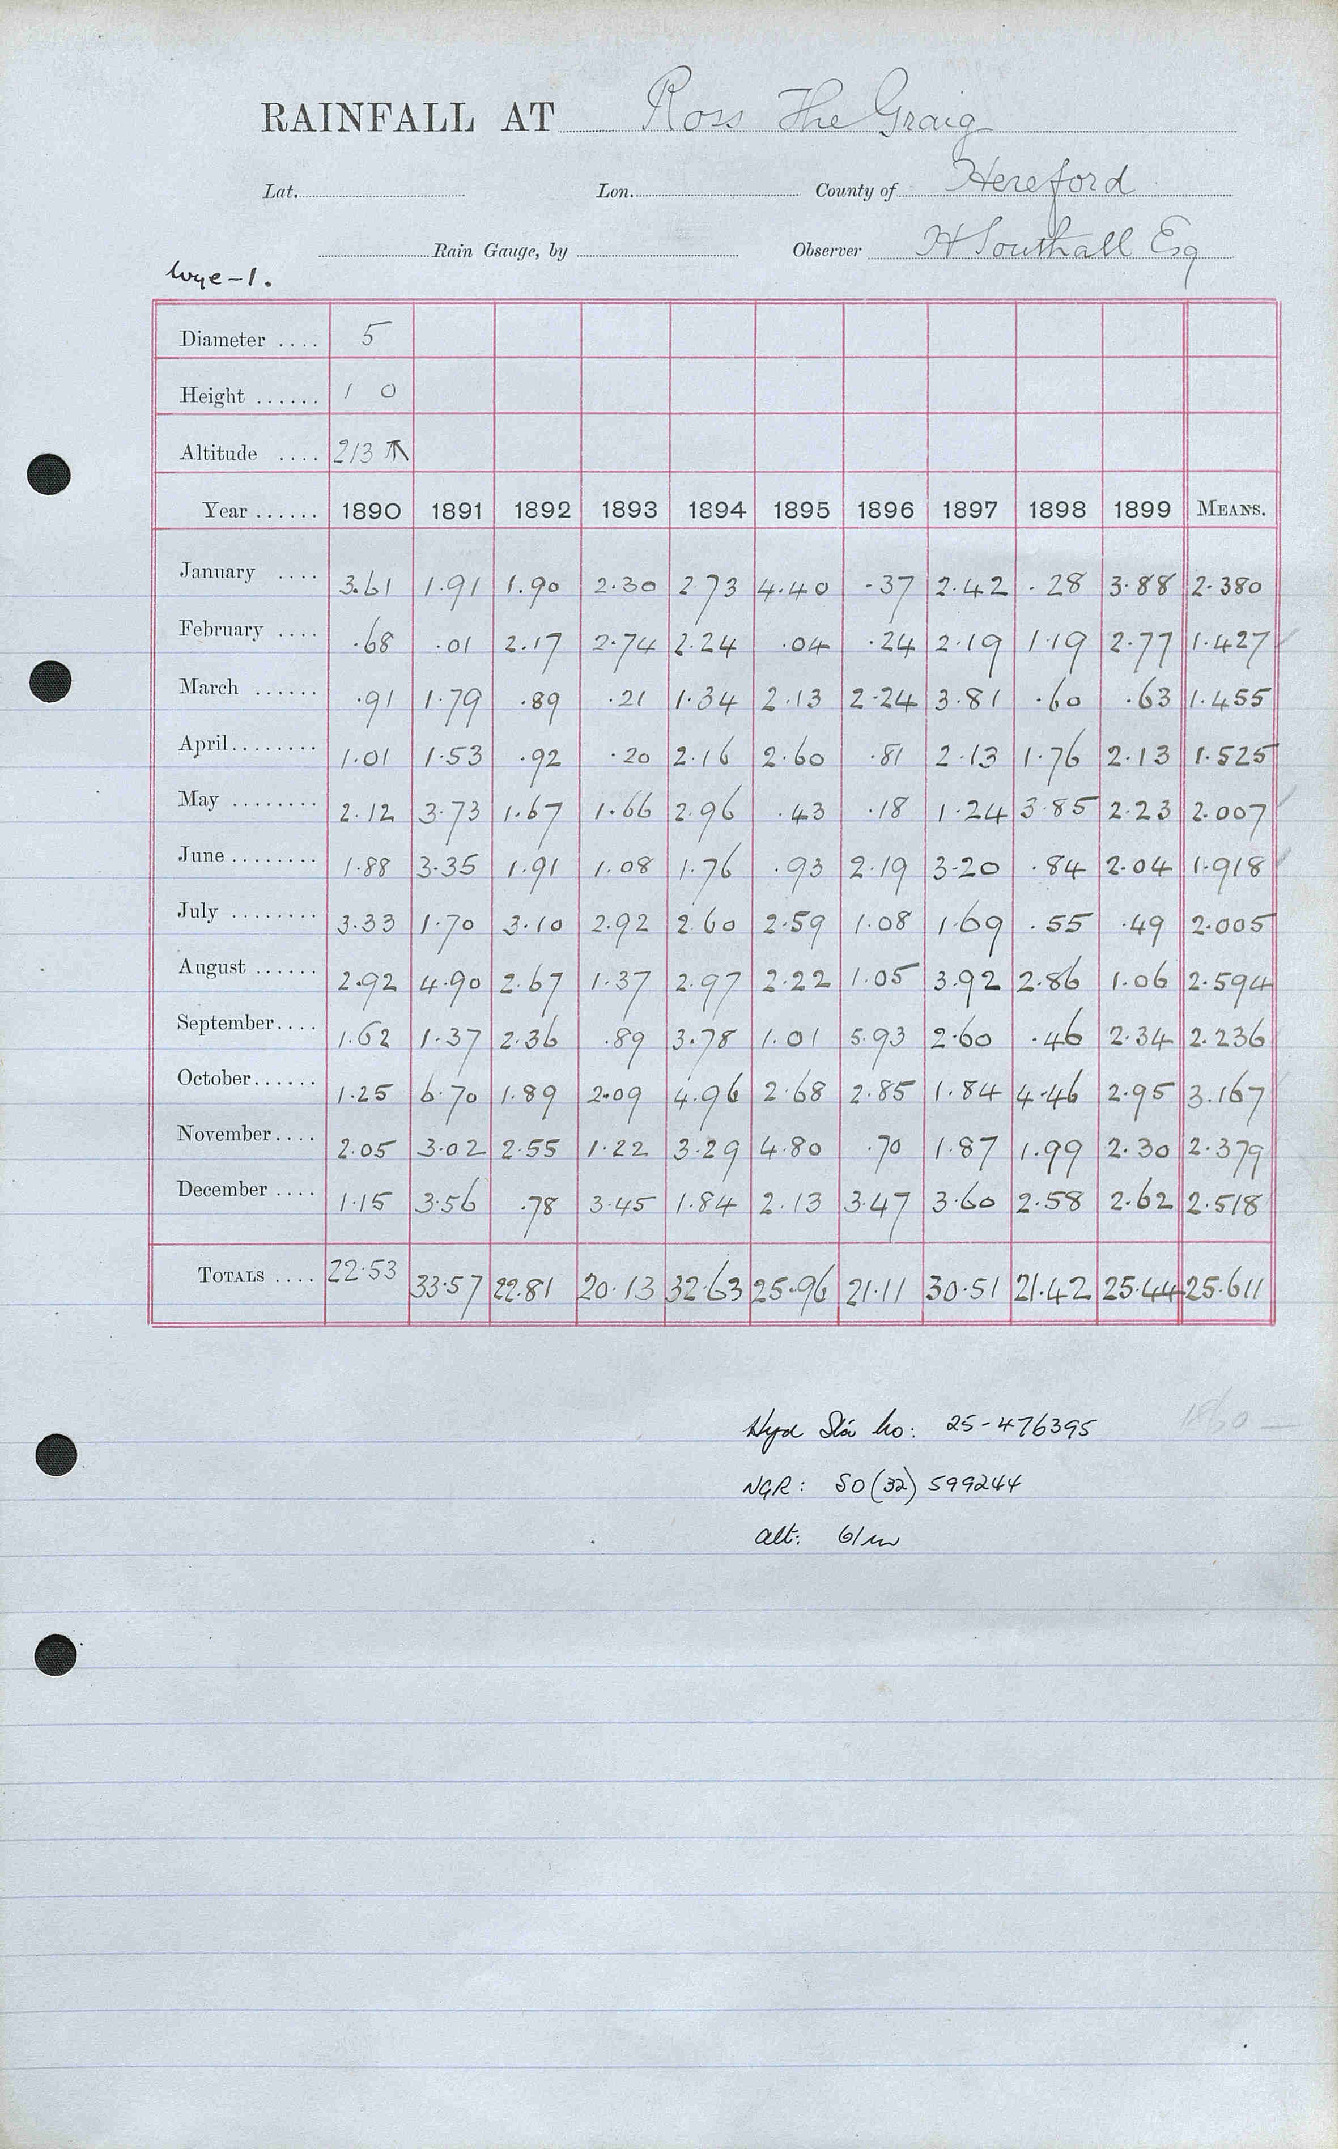 RAINFALL AT Ross The Graig
Lat. Lon. County of Hereford
Rain Gauge, by Observer H Southall Esq
Wye-1.
Diameter .... 5
Height ...... 1 0
Altitude .... 213
Year ...... 1890 1891 1892 1893 1894 1895 1896 1897 1898 1899 MEANS.
January .... 3.61 1.91 1.90 2.30 2.73 4.40 .37 2.42 .28 3.88 2.380
February .... .68 .01 2.17 2.74 2.24 .04 .24 2.19 1.19 2.77 1.427
March ...... .91 1.79 .89 .21 1.34 2.13 2.24 3.81 .60 .63 1.455
April........ 1.01 1.53 .92 .20 2.16 2.60 .81 2.13 1.76 2.13 1.525
May ........ 2.12 3.73 1.67 1.66 2.96 .43 .18 1.24 3.85 2.23 2.007
June ........ 1.88 3.35 1.91 1.08 1.76 .93 2.19 3.20 .84 2.04 1.918
July ........ 3.33 1.70 3.10 2.92 2.60 2.59 1.08 1.69 .55 .49 2.005
August ...... 2.92 4.90 2.67 1.37 2.97 2.22 1.05 3.92 2.86 1.06 2.594
September.... 1.62 1.37 2.36 .89 3.78 1.01 5.93 2.60 .46 2.34 2.236
October...... 1.25 6.70 1.89 2.09 4.96 2.68 2.85 1.84 4.46 2.95 3.167
November.... 2.05 3.02 2.55 1.22 3.29 4.80 .70 1.87 1.99 2.30 2.379
December .... 1.15 3.56 .78 3.45 1.84 2.13 3.47 3.60 2.58 2.62 2.518
TOTALS .... 22.53 33.57 22.81 20.13 32.63 25.96 21.11 30.51 21.42 25.44 25.611
Hyd Stn No: 25-476395
NGR: SO(32) 599244
alt: 61m